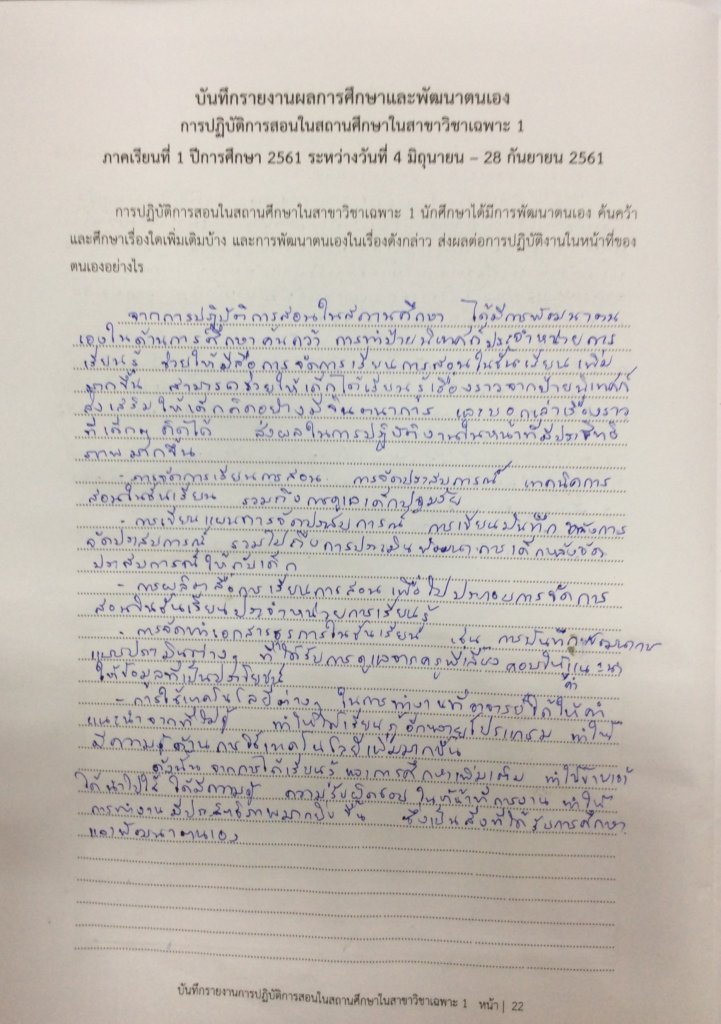 บันทึกรายงานผลการศึกษาและพัฒนาตนเอง
การปฏิบัติการสอนในสถานศึกษาในสาขาวิชาเฉพาะ 1
ภาคเรียนที่ 1 ปีการศึกษา 2561 ระหว่างวันที่ 4 มิถุนายน – 28 กันยายน 2561
การปฏิบัติการสอนในสถานศึกษาในสาขาวิชาเฉพาะ 1 นักศึกษาได้มีการพัฒนาตนเอง ค้นคว้า
และศึกษาเรื่องใดเพิ่มเติมบ้าง และการพัฒนาตนเองในเรื่องดังกล่าว ส่งผลต่อการปฏิบัติงานในหน้าที่ของ
ตนเองอย่างไร
จากการปฏิบัติการสอนในสถานศึกษา ได้มีการพัฒนาตน
เองในด้านการศึกษาค้นคว้า การทำป้ายนิเทศก์ประจำหน่วยการ
เรียนรู้ ช่วยให้มีสื่อการจัดการเรียนการสอนในชั้นเรียนเพิ่ม
มากขึ้น สามารถช่วยให้เด็กได้เรียนรู้เรื่องราวจากป้ายนิเทศก์
ส่งเสริมให้เด็กคิดอย่างมีจินตนาการ และบอกเล่าเรื่องราว
ที่เด็กๆ คิดได้ ส่งผลในการปฏิบัติงานในหน้าที่มีประสิทธิ
ภาพมากขึ้น
- การจัดการเรียนการสอน การจัดประสบการณ์ เทคนิคการ
สอนในชั้นเรียน รวมถึงการดูแลเด็กปฐมวัย
- การเขียนแผนการจัดประสบการณ์ การเขียนบันทึก หลังการ
จัดประสบการณ์ รวมไปถึงการประเมินพัฒนาการเด็กหลังจัด
ประสบการณ์ให้กับเด็ก
- การผลิตสื่อการเรียนการสอน เพื่อไปประกอบการจัดการ
สอนในชั้นเรียนประจำหน่วยการเรียนรู้
- การจัดทำเอกสารธุรการในชั้นเรียน เช่น การบันทึกพัฒนาการ
แบบประเมินต่างๆ ที่ได้รับการดูแลจากครูพี่เลี้ยง คอยให้แนะนำ
คำ
ให้ข้อมูลที่เป็นประโยชน์
- การใช้เทคโนโลยีต่างๆ ในการทำงานที่อาจารย์ได้ให้คำ
แนะนำจากที่ไม่รู้ ทำให้ได้เรียนรู้อีกหลายโปรแกรม ทำให้
มีความรู้ด้านการใช้เทคโนโลยีเพิ่มมากขึ้น
ดังนั้น จากการได้เรียนรู้ และการศึกษาเพิ่มเติม ทำให้ข้าพเจ้า
ได้นำไปใช้ ได้มีความรู้ ความรับผิดชอบ ในหน้าที่การงาน ทำให้
การทำงานมีประสิทธิภาพมากยิ่งขึ้น ซึ่งเป็นสิ่งที่ได้รับการศึกษา
และพัฒนาตนเอง
บันทึกรายงานการปฏิบัติการสอนในสถานศึกษาในสาขาวิชาเฉพาะ 1 หน้า | 22